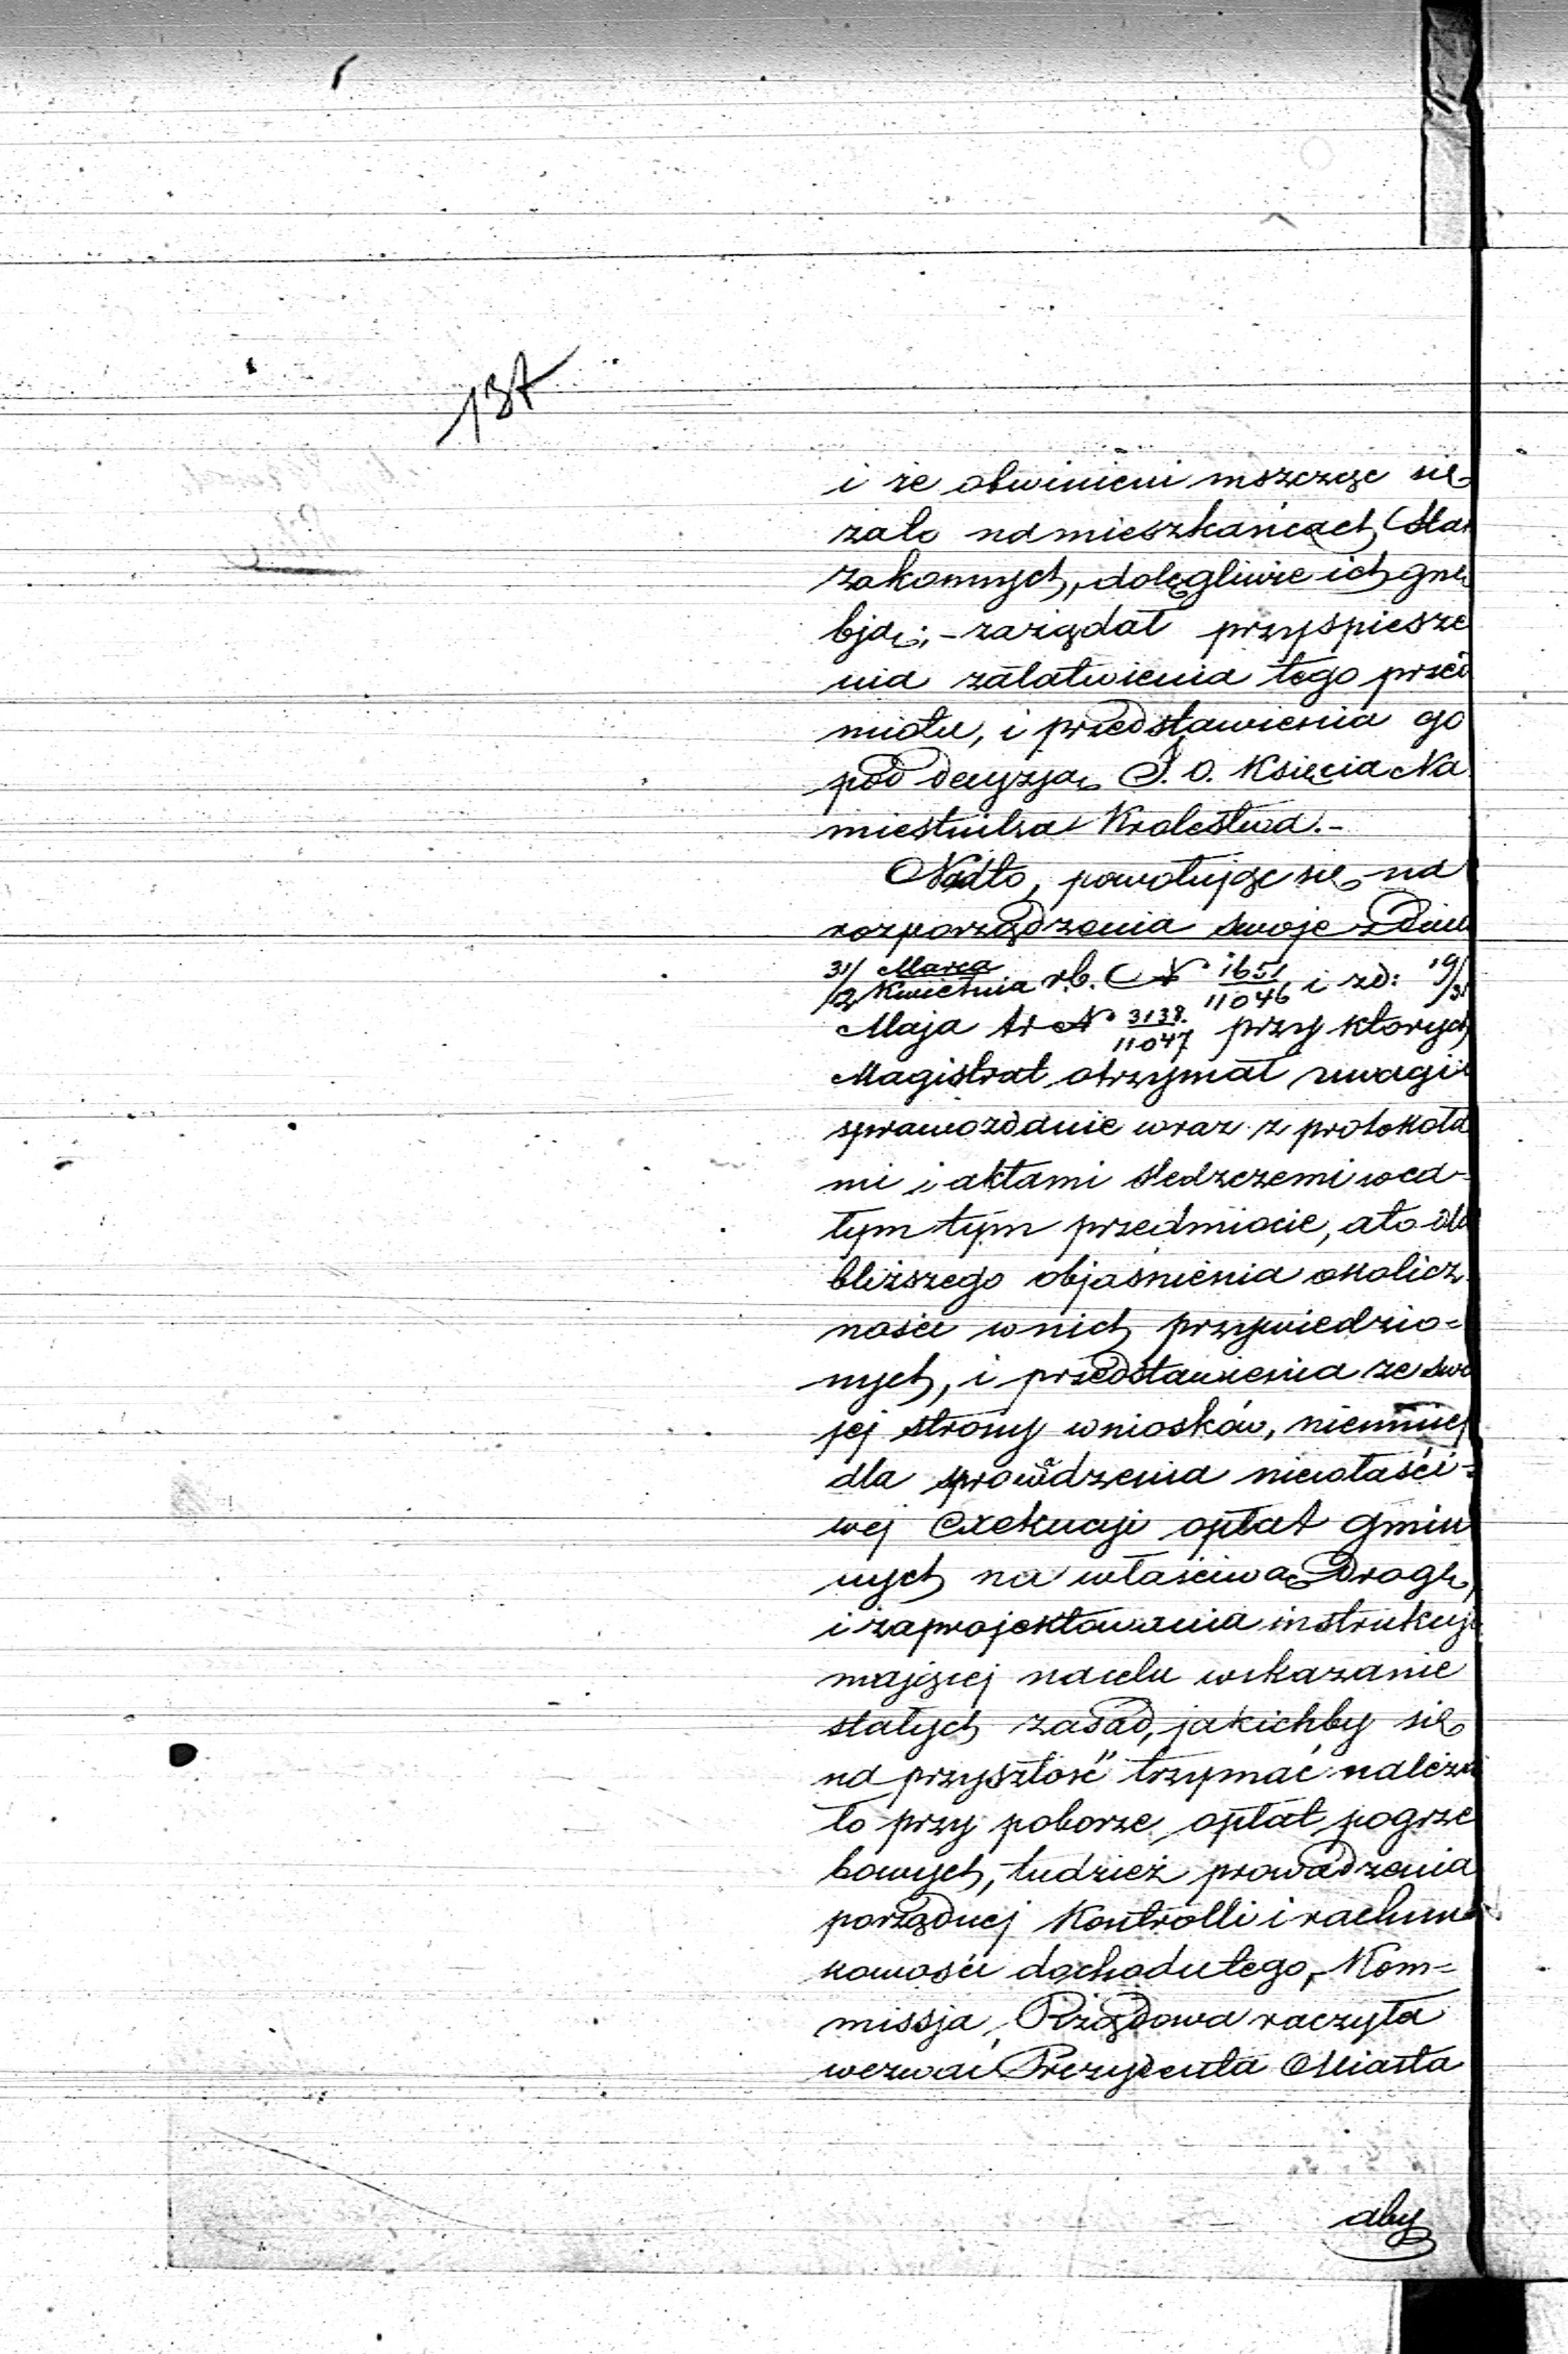 137
i że obwinieni mszcząc się
zato na mieszkańcach Sta
zakonnych, dolegliwie ich gnę
bją; - zażądał przyśpiesze
nia załatwienia tego przed
miotu, i przedstawienia go
pod decyzją J. O. Księcia Na
miestnika Krolestwa. -
Nadto, powołując się na
rozporządzenia swoje z Dnia
31/2 Marca/Kwietnia r.b. N 1651/11046 i z d: 19/31
Maja tr N 3138./11047 przy których
Magistrat otrzymał uwagi i
sprawozdanie wraz z protokoła
mi i aktami śledzczemi w ca-
łym tym przedmiocie, a to dla
bliższego objaśnienia okolicz
ności w nich przywiedzio=
nych, i przedstawienia ze swo
jej strony wniosków, niemniej
dla sprowadzenia niewłaści=
wej Exekucji opłat gmin
nych na właściwą Drogę,
i zaprojektowania instrukcji
mającej na celu wskazanie
stałych zasad, jakichby się
na przyszłość trzymać należa
ło przy poborze opłat pogrze
bowych, tudzież prowadzenia
porządnej Kontrolli i rachun
kowości dochodu tego, Kom=
missja Rządowa raczyła
wezwać Prezydenta Miasta
aby